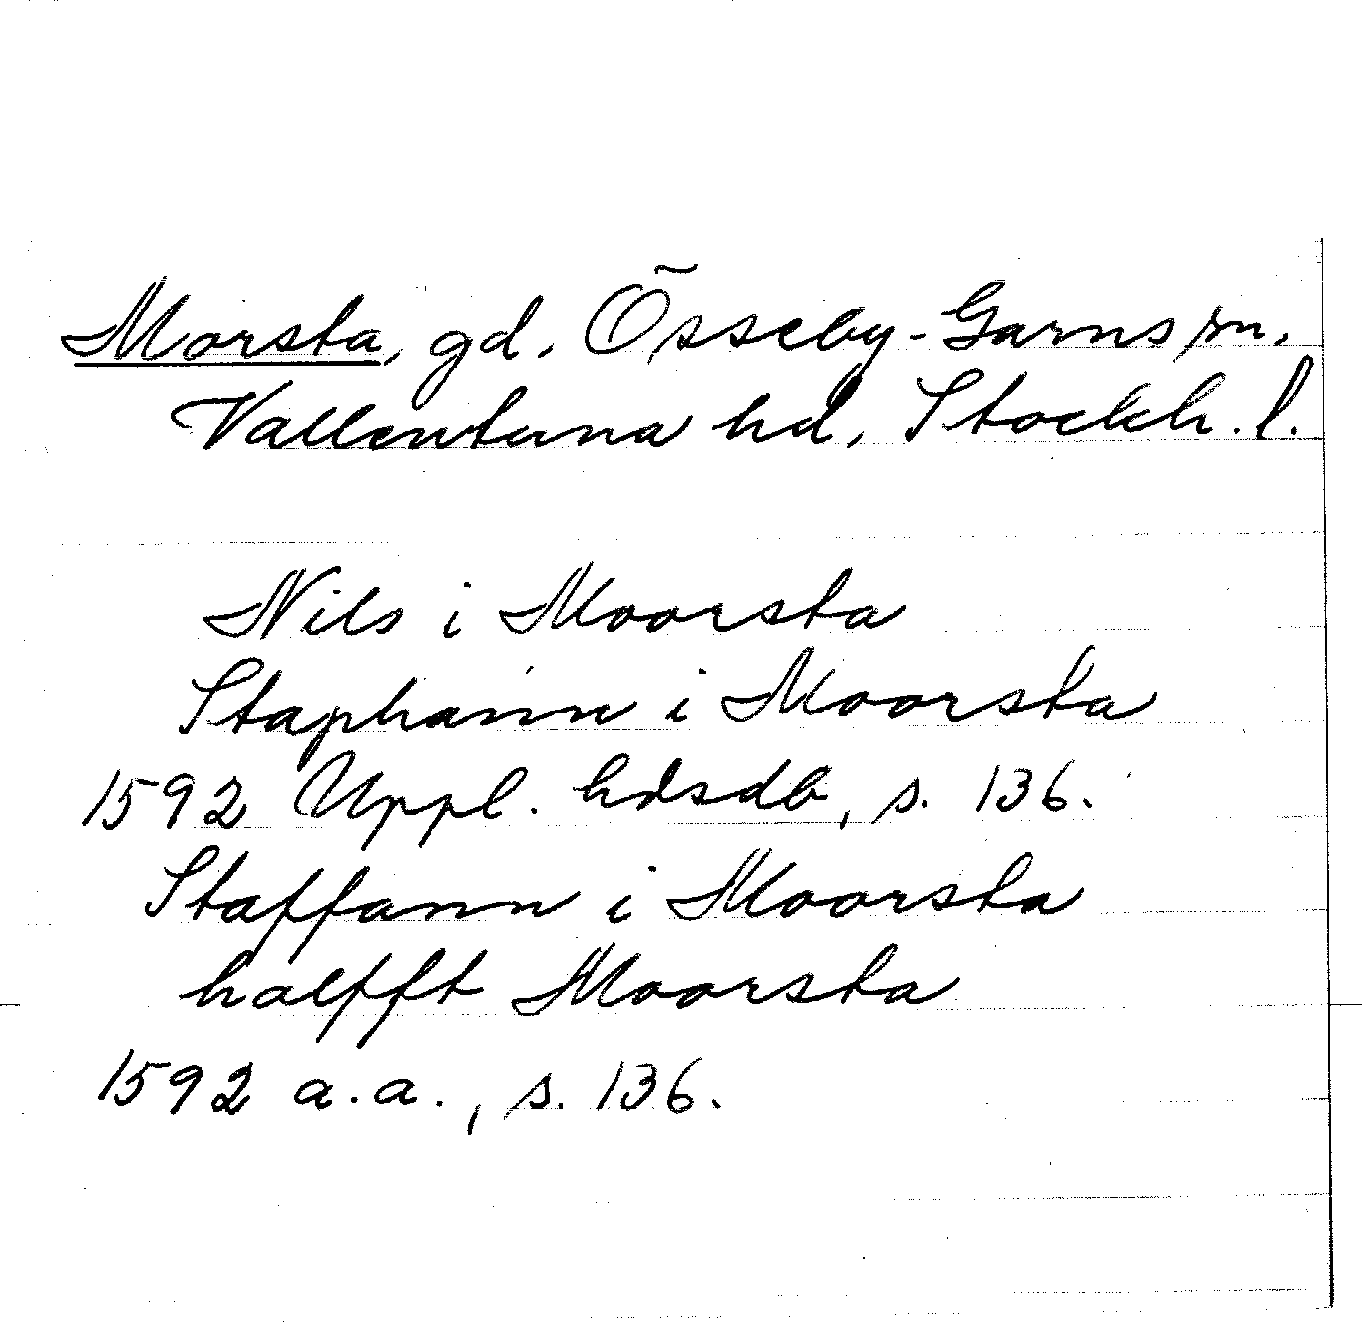 Morsta, gd, Össeby-Garns sn,
Vallentuna hd, Stockh. l.
Nils i Moorsta
Staphann i Moorsta
1592 Uppl. hdsdb, s. 136.
Staffann i Moorsta
halfft Moorsta
1592 a.a., s. 136.